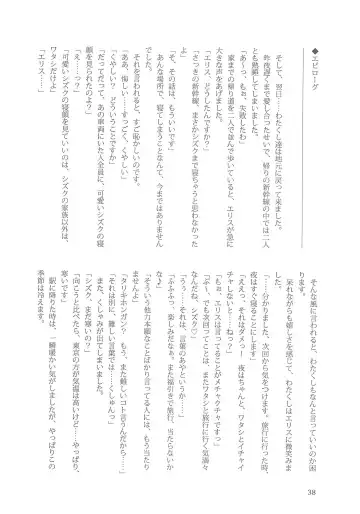 ◆エピローグ
そして、翌日、わたくし達は地元に戻って来ました。
昨夜遅くまで愛し合ったせいで、帰りの新幹線の中では二人
とも熟睡してしまいました。
家までの帰り道を二人で並んで歩いていると、エリスが急に
大きな声をあげました。
「あ〜っもぉ、失敗したわ」
「エリス、どうしたんですか？」
「さっきの新幹線、まさかシズクまで寝ちゃうと思わなかった
でした。
あんな場所で、寝てしまうことなんて、今まではありません
「そ、その話は、もういいです」
それを言われると、すご恥かしいのです。
「ああ、悔しい……すっごく、くやしい」
「くやしい？どういうことですか」
「だってだって、あの車両にいた人全員に、可愛いシズクの寝
顔を見られたのよ」
「え……？」
「可愛いシズクの寝顔を見ていいのは、シズクの家族以外は、
ワタシだけよ」
「エリス……」
そんな風に言われると、わたくしもなんと言っていいのか困
ります。
呆れながらも嬉しさを感じて、わたくしはエリスに微笑みま
「……分かりました、次回から気をつけます。旅行に行った時、
夜はすぐ寝ることにします」
「ええっ、それはダメっ！　夜はちゃんと、ワタシとイチャイ
チャしないと……ねっ？」
「もぉ、エリスは言ってることがメチャクチャですっ」
「ぷ〜、でも次回ってことは、またワタシと旅行に行く気満々
なんだね、シズク♡」
「うぅ……それは、言葉のあやというか……」
「ふふふっ、楽しみだなぁ。また福引きで旅行、当たらないか
な♪」
「そういう他力本願なことばかり言ってる人には、もう当たり
ませんよ」
「タリキホンガン？　もう、また難しいコト言うんだから〜」
「それは別に、難しい言葉では……くしゅんっ」
また、くしゃみが出てしまいました。
「シズク、まだ寒いの？」
「向こうと比べたら、東京の方が気温は高いけど……やっぱり、
寒いです」
駅に降りた時は、一瞬暖かい気がしましたが、やっぱりこの
季節は冷えます。
38